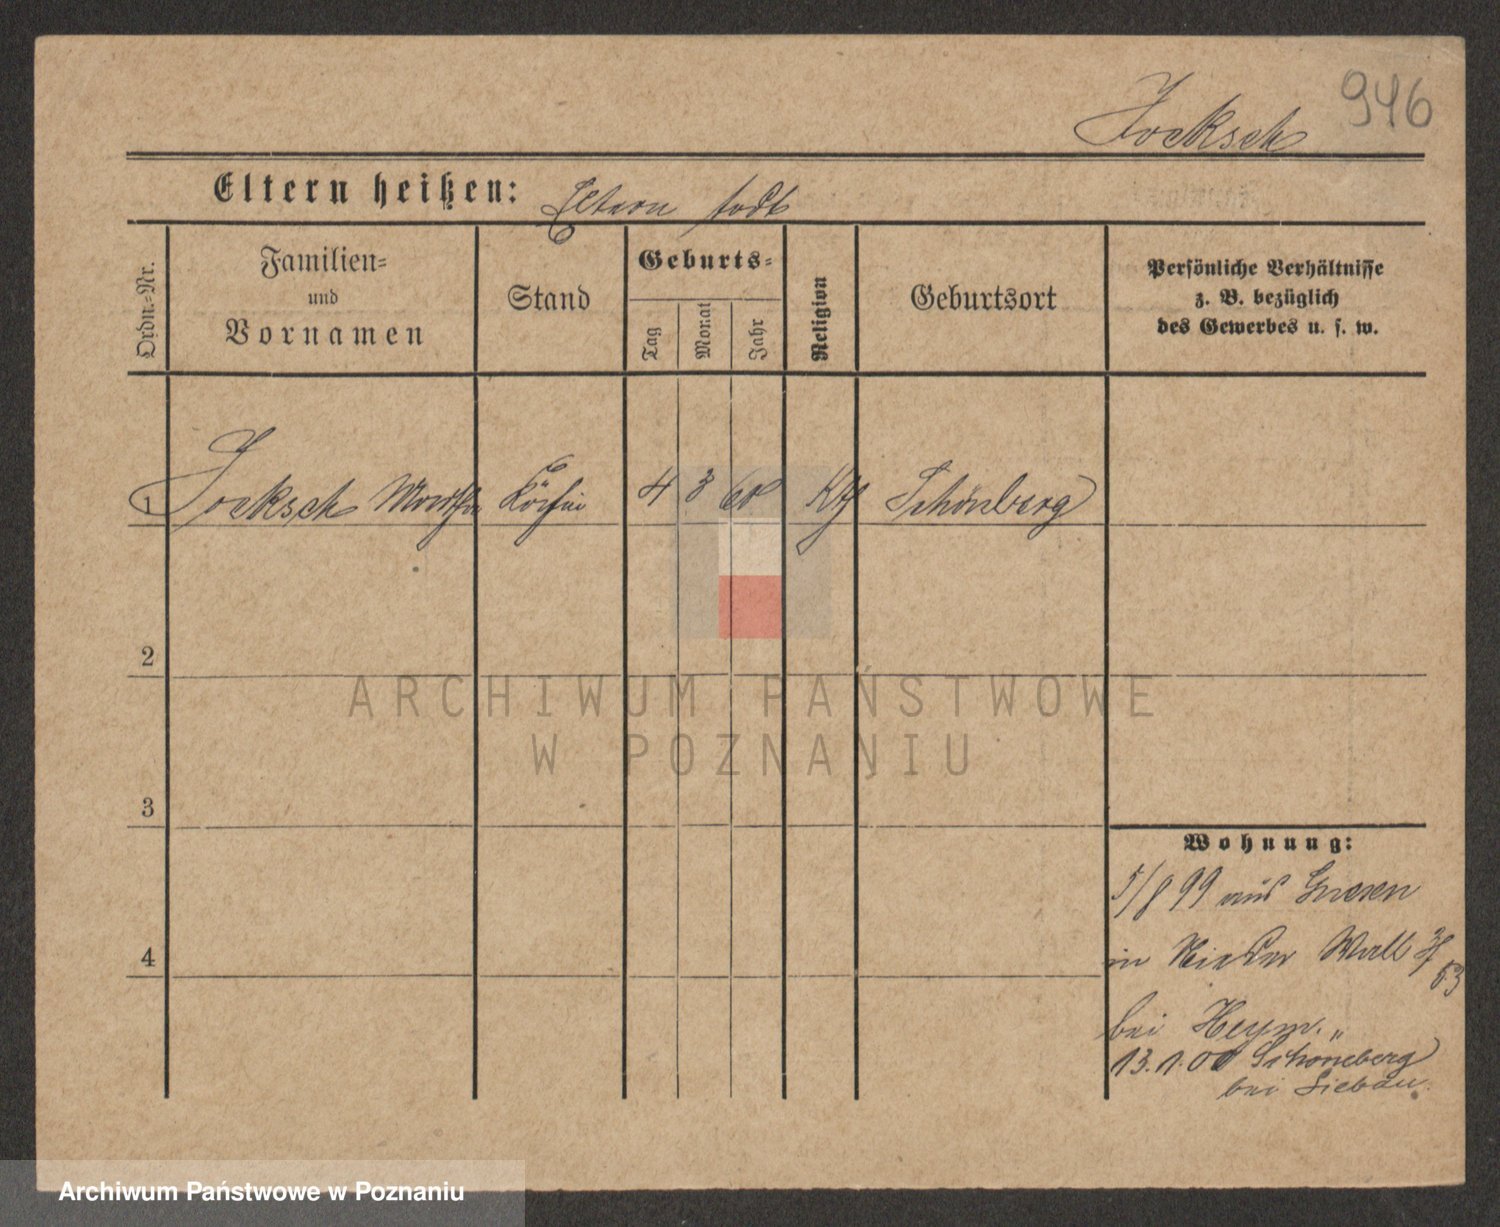 946
Jocksch
Eltern heißen: Eltern todt
Ordn.=Nr.
Familien=
und
Vornamen
Stand
Geburts=
Tag
Monat
Jahr
Religion
Geburtsort
Persönliche Verhältnisse
z. B. bezüglich
des Gewerbes u. s. w.
1 Jocksch Martha Köchin 4 3 60 Kth Schönberg
2
3
4
Wohnung:
5/8 99 aus Gnesen
in Nieder Wall
bei Heym.
13.1.00 Schöneberg
bei Liebau.
ARCHIWUM PAŃSTWOWE
W POZNANIU
Archiwum Państwowe w Poznaniu